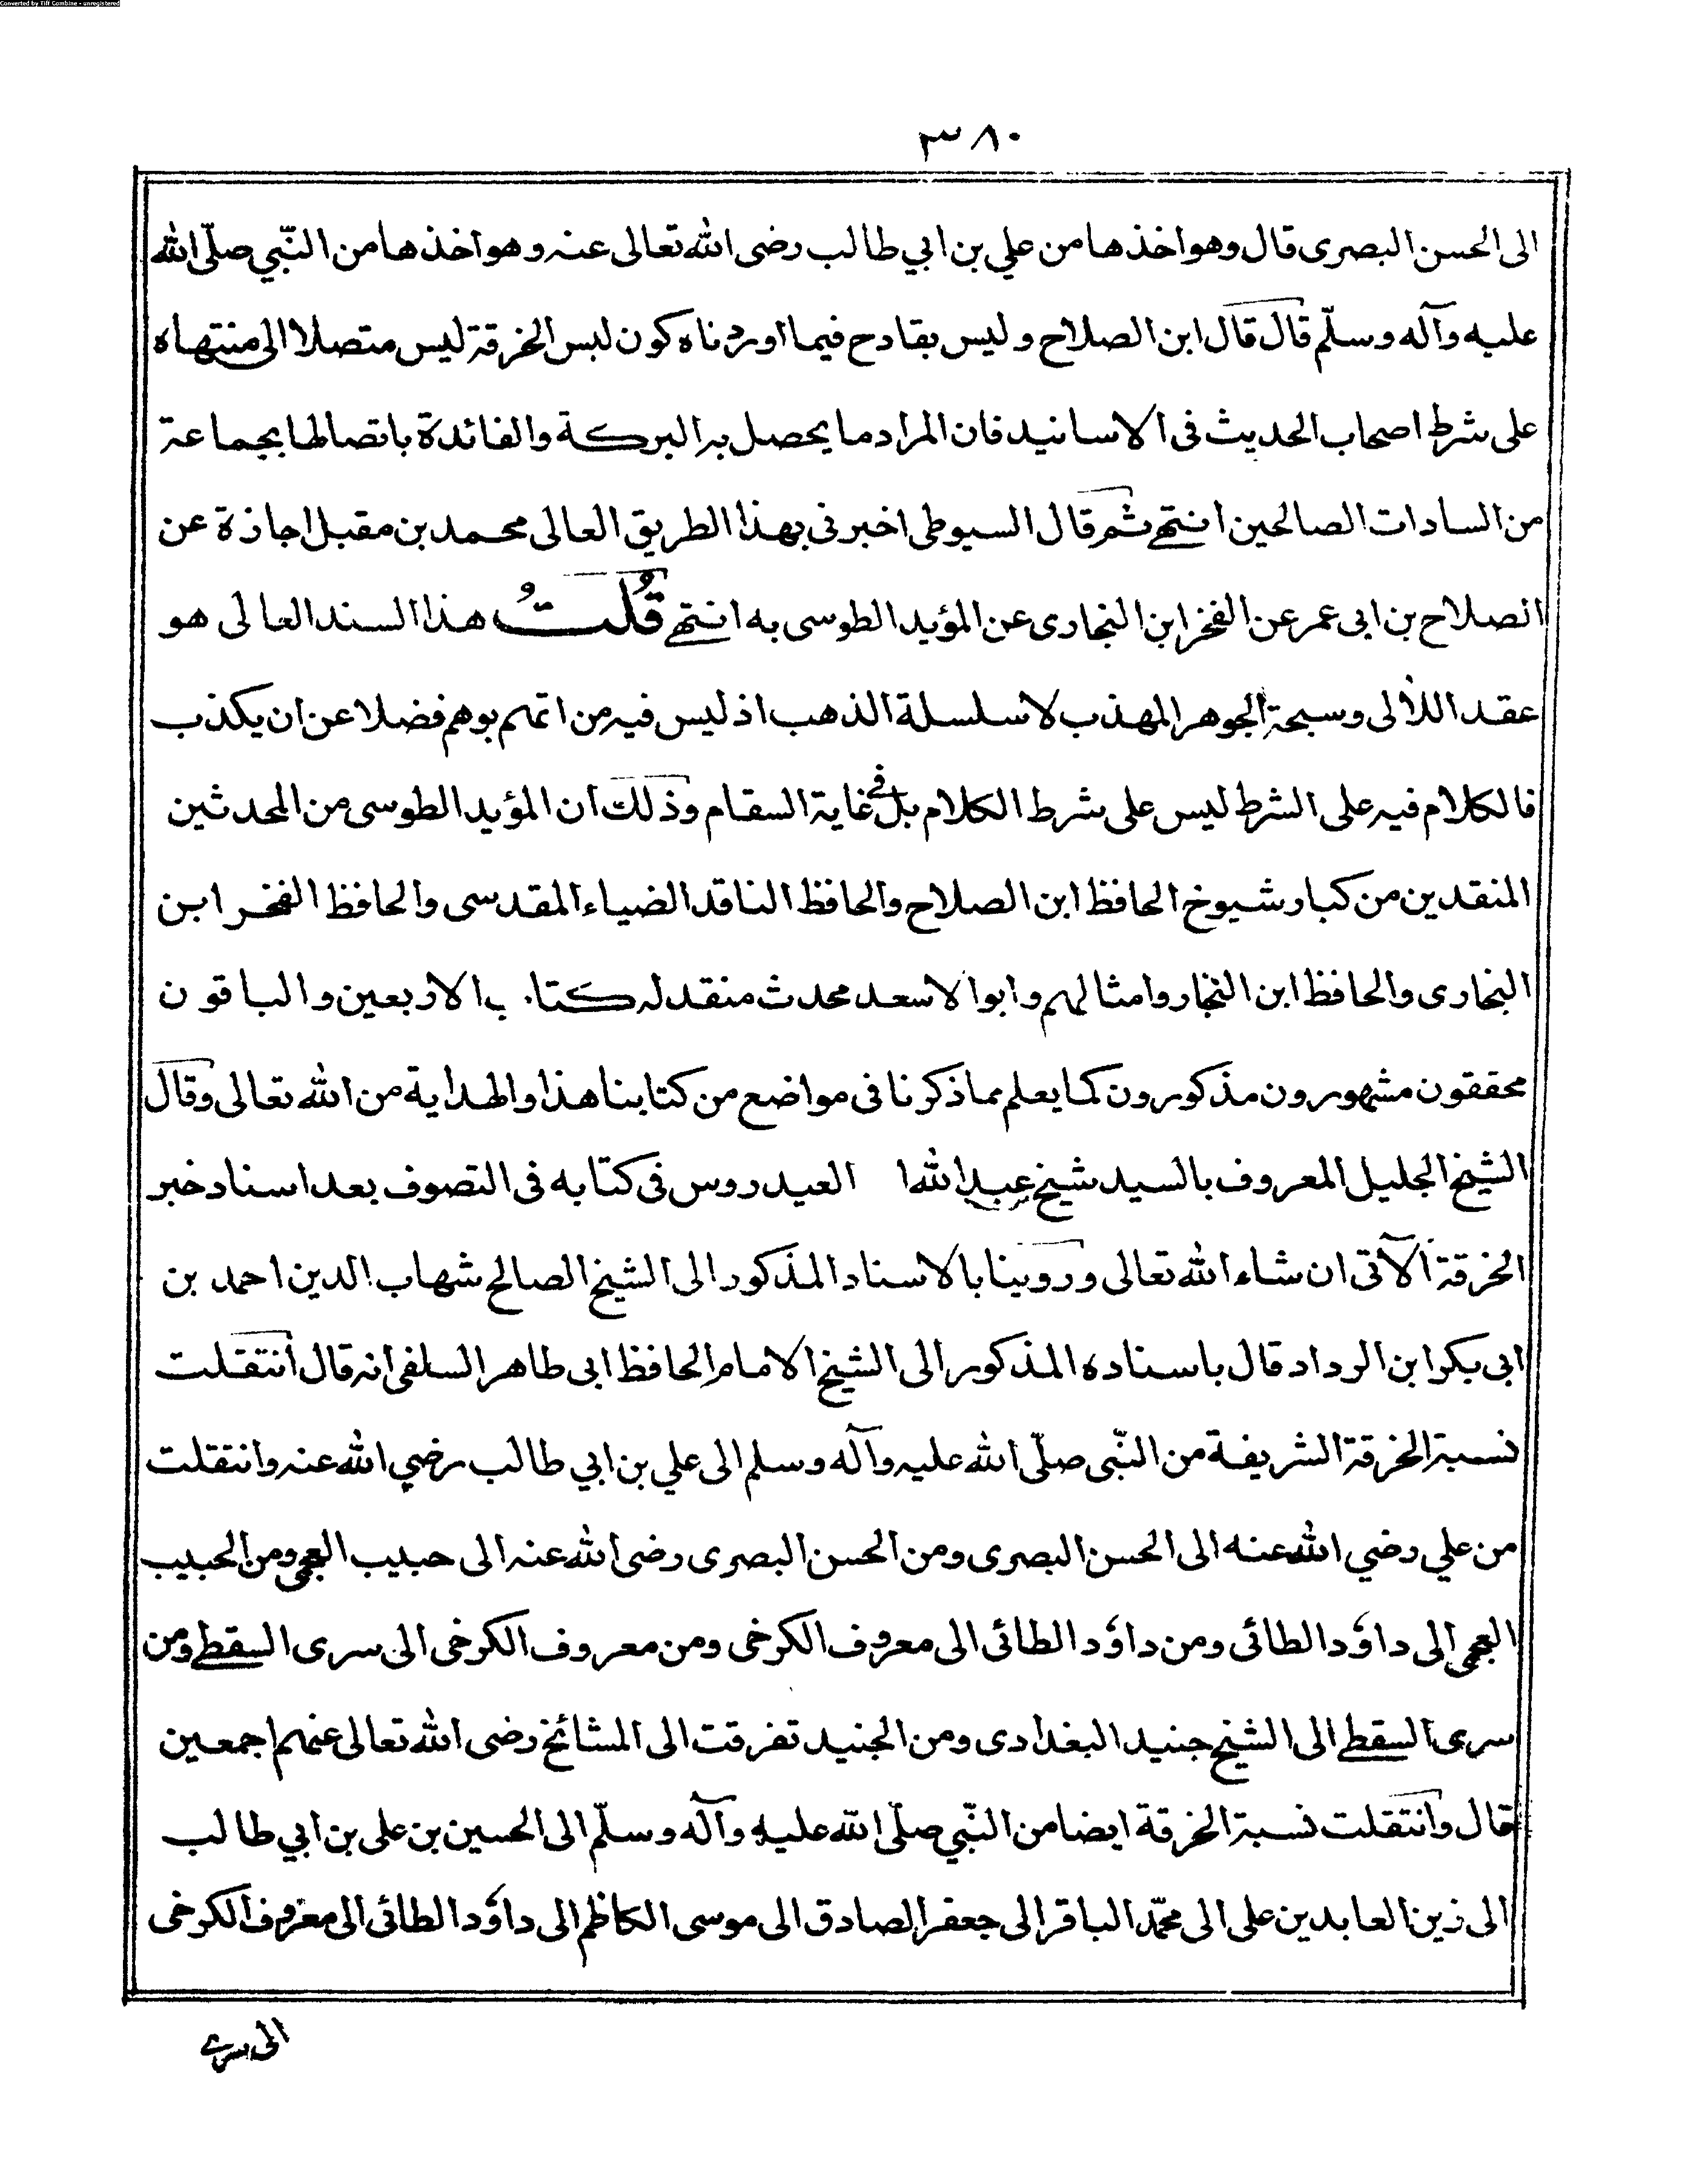 Converted by Tiff Combine - unregistered
٣٨٠
الى الحسن البصرى قال وهو اخذها من علي بن ابي طالب رضى الله تعالى عنه وهو اخذها من النّبي صلّى الله
عليه وآله وسلّم قال قال ابن الصلاح وليس بقادح فيما اوردناه كون لبس الخرقة ليس متصلا الى منتهاه
على شرط اصحاب الحديث فى الاسانيد فان المراد ما يحصل به البركة والفائدة باتصالها بجماعة
من السادات الصالحين انتهى ثم قال السيوطى اخبرنى بهذا الطريق العالى محمد بن مقبل اجازة عن
الصلاح بن ابى عمر عن الفخر ابن البخارى عن المؤيد الطوسى به انتهى قُلتُ هذا السند العالى هو
عقد اللالى وسبحة الجوهر المهذب لا سلسلة الذهب اذ ليس فيه من اتهم بوهم فضلا عن ان يكذب
فالكلام فيه على الشرط ليس على شرط الكلام بل فى غاية السقام وذلك ان المؤيد الطوسى من المحدثين
المنقدين من كبار شيوخ الحافظ ابن الصلاح والحافظ الناقد الضياء المقدسى والحافظ الفخر ابن
البخارى والحافظ ابن النجار وامثالهم وابو الاسعد محدث منقد له كتاب الاربعين والباقون
محققون مشهورون مذكورون كما يعلم مما ذكرنا فى مواضع من كتابنا هذا والهداية من الله تعالى وقال
الشيخ الجليل المعروف بالسيد شيخ عبد الله العيدروس فى كتابه فى التصوف بعد اسناد خبر
الخرقة الآتى ان شاء الله تعالى وروينا بالاسناد المذكور الى الشيخ الصالح شهاب الدين احمد بن
ابى بكر ابن الرداد قال باسناده المذكور الى الشيخ الامام الحافظ ابى طاهر السلفى انه قال انتقلت
نسبة الخرقة الشريفة من النّبى صلّى الله عليه وآله وسلم الى علي بن ابي طالب رضي الله عنه وانتقلت
من علي رضي الله عنه الى الحسن البصرى ومن الحسن البصرى رضى الله عنه الى حبيب العجمى ومن الحبيب
العجمى الى داوٗد الطائى ومن داوٗد الطائى الى معروف الكرخى ومن معروف الكرخى الى سرى السقطى ومن
سرى السقطى الى الشيخ جنيد البغدادى ومن الجنيد تفرقت الى المشائخ رضى الله تعالى عنهم اجمعين
قال وانتقلت نسبة الخرقة ايضا من النّبي صلّى الله عليه وآله وسلّم الى الحسين بن على بن ابي طالب
الى زين العابدين على الى محمّد الباقر الى جعفر الصادق الى موسى الكاظم الى داوٗد الطائى الى معروف الكرخى
الى سرى